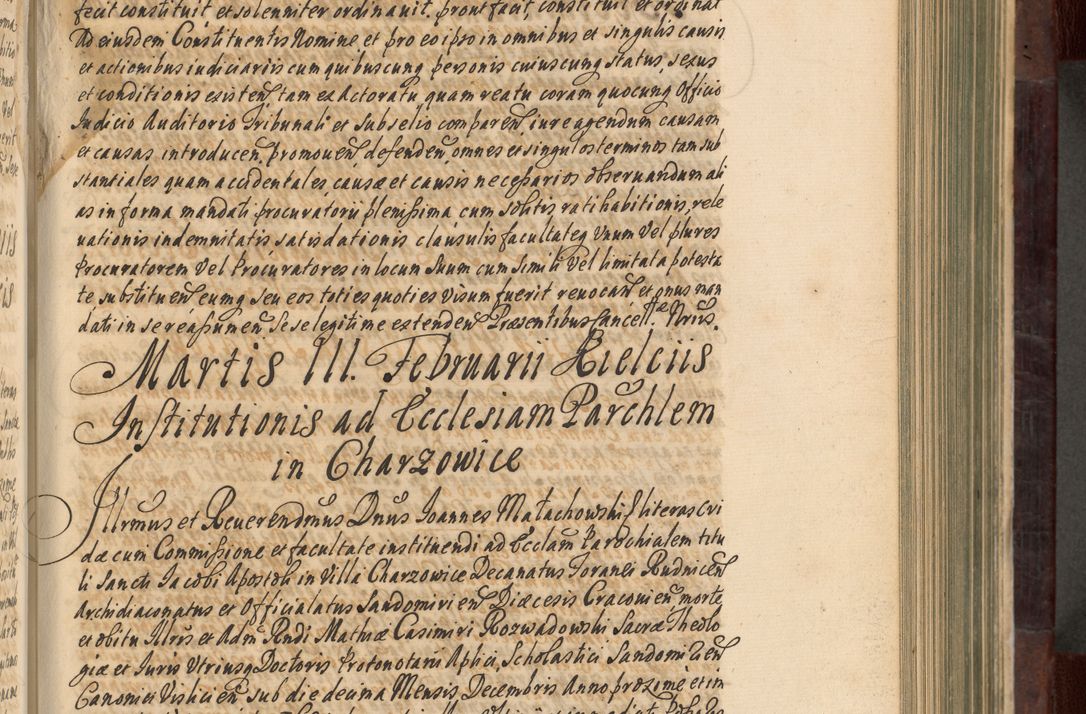 fecit constituit et solenniter ordinavit, prout facit, constituit et ordinat
Ad eiusdem Constituentis Nomine et pro eo ipso in omnibus et singulis causis
et actionibus iudiciariis cum quibuscunq personis cuiuscunq status, sexus
et conditionis existen, tam ex Actoratu quam reatu coram quocunq Officio
Iudicio Auditorio Tribunali et Subselio comparen, iure agendum causam
et causas introducen, promouen defenden, omnes et singulos terminos tam sub
stantiales quam accidentales, causæ et causis necessarios observandum ali
as in forma mandati procuratorii plenissima cum solitis ratihabitionis, rele
uationis indemnitatis satisdationis clausulis facultateq unum vel plures
Procuratorem Vel Procuratores in locum Suum cum simili Vel limitata potesta
te substituen eumq seu eos toties quoties visum fuerit revocan et onus man
dati in se reassumen Sese legitime extenden Præsentibus Cancell. Nrius.
Martis III. Februarii Kielciis
Institutionis ad Ecclesiam Parchlem
in Charzowice
Illrmus et Reuerendmus Dnus Ioannes Małachowski literas Cri
dæ cum Commissione et facultate instituendi ad Ecclam Parochialem titu
li Sancti Iacobi Apostoli in Villa Charzowice Decanatus Foranei Rudnicen
Archidiaconatus et Officialatus Sandomirien Diæcesis Cracovien morte
et obitu Illris et Adm Rndi Mathiæ Casimiri Rozwadowski Sacræ Theolo
giæ et Iuris Utriusq Doctoris Protonotarii Aplici, Scholastici Sandomirien
Canonici Vislicien sub die decima Mensis Decembris Anno proxime et im